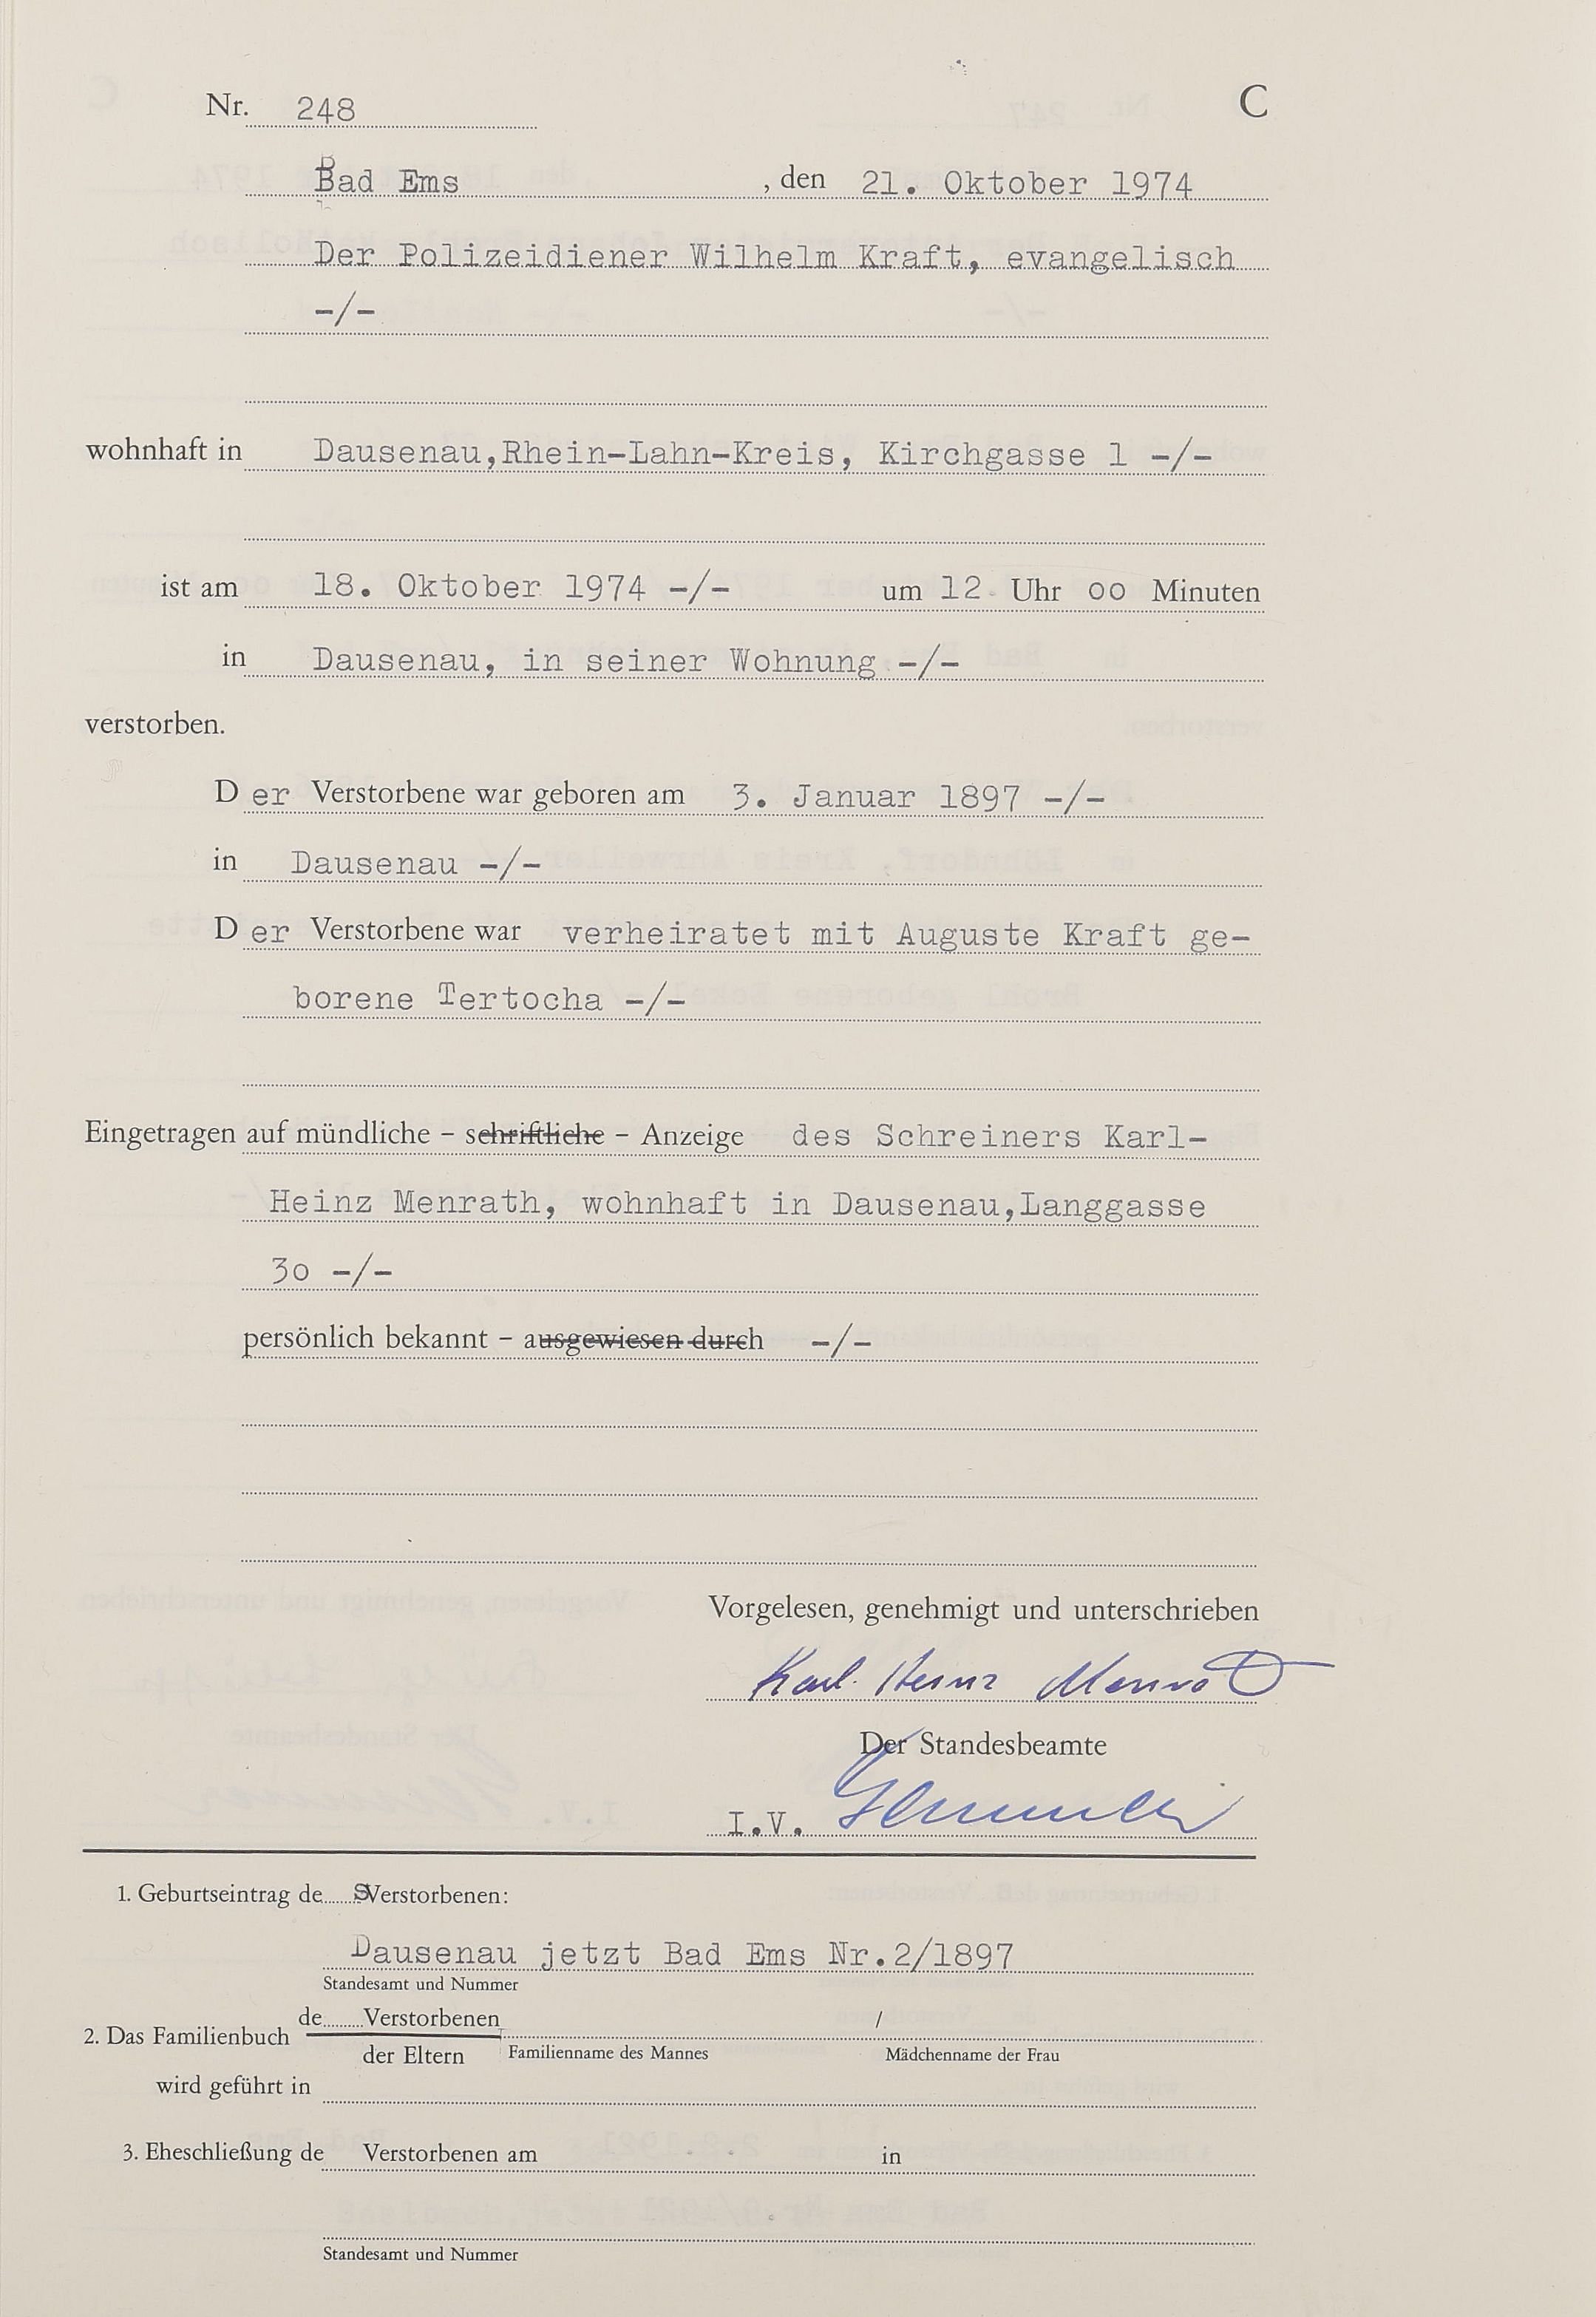 Nr. 248 C
Bad Ems , den 21. Oktober 1974
Der Polizeidiener Wilhelm Kraft, evangelisch
-/-
wohnhaft in Dausenau,Rhein-Lahn-Kreis, Kirchgasse 1 -/-
ist am 18. Oktober 1974 -/- um 12 Uhr oo Minuten
in Dausenau, in seiner Wohnung -/-
verstorben.
D er Verstorbene war geboren am 3. Januar 1897 -/-
in Dausenau -/-
D er Verstorbene war verheiratet mit Auguste Kraft ge-
borene Tertocha -/-
Eingetragen auf mündliche - schriftliche - Anzeige des Schreiners Karl-
Heinz Menrath, wohnhaft in Dausenau,Langgasse
3o -/-
persönlich bekannt - ausgewiesen durch -/-
Vorgelesen, genehmigt und unterschrieben
Karl-Heinz Menrath
Der Standesbeamte
I.V.
1. Geburtseintrag de s Verstorbenen:
Dausenau jetzt Bad Ems Nr.2/1897
Standesamt und Nummer
2. Das Familienbuch de Verstorbenen /
der Eltern Familienname des Mannes Mädchenname der Frau
wird geführt in
3. Eheschließung de Verstorbenen am in
Standesamt und Nummer